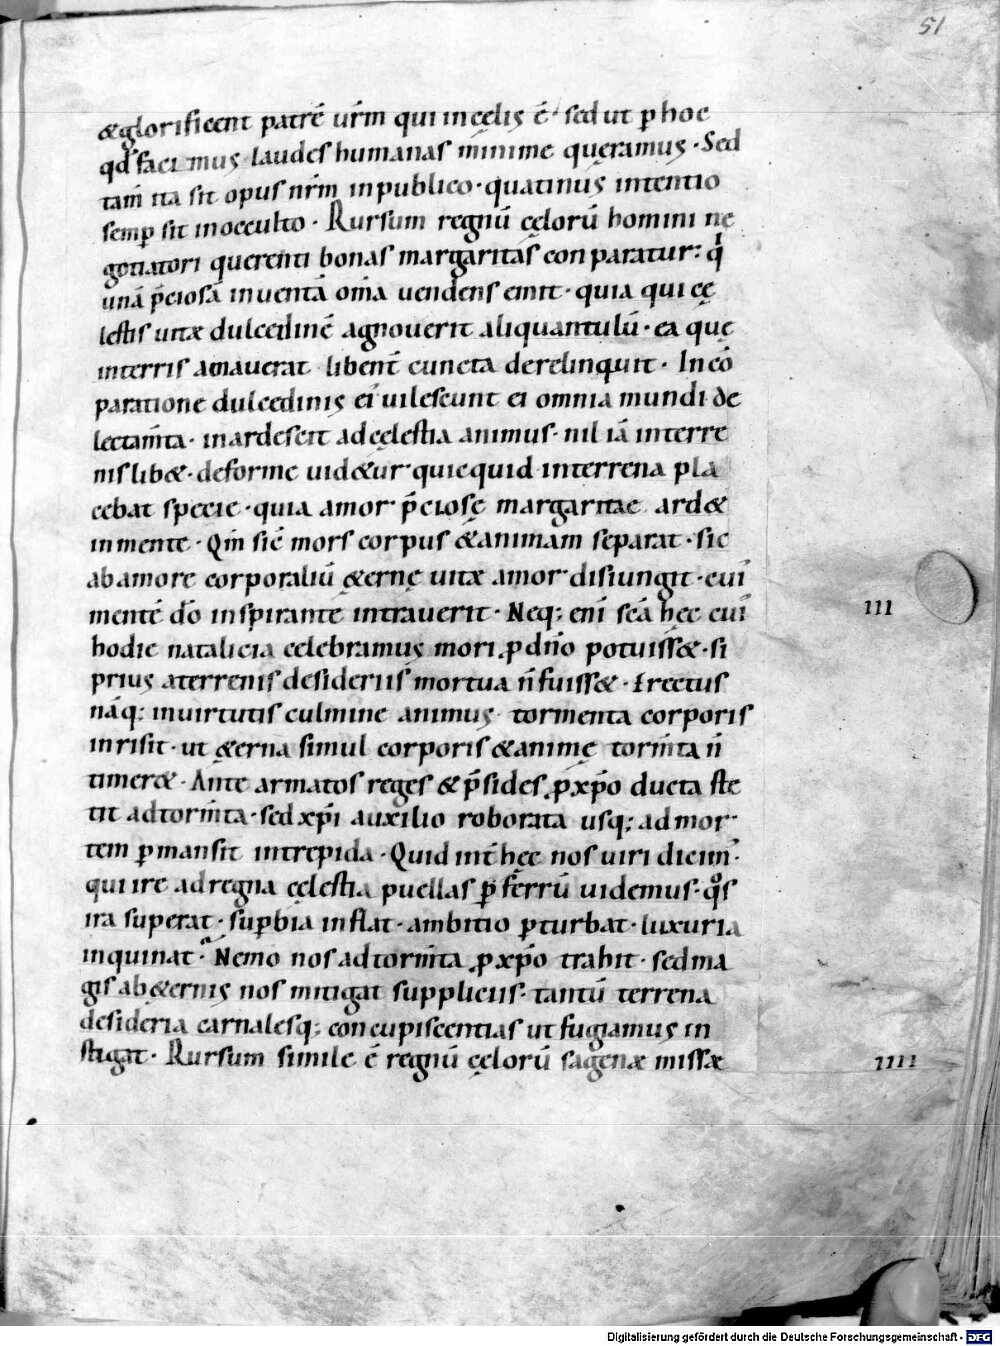 51
&glorificent patrē vr̄m qui incęlis ē· sed ut ꝑ hoc
qđ facimus laudes humanas minime quęramus· Sed
tam̄ ita sit opus nr̄m inpublico· quatinus intentio
semꝑ sit inocculto· Rursum regnū cęlorū homini ne
gotiatori querenti bonas margaritas conparatur: qͥ
unā p̄ciosā inventā om̄a uendens emit· quia qui cę
lestis uitæ dulcedinē agnoverit aliquantulū· ea quę
interris amauerat libent̄ cuncta derelinquit· Incō
paratione dulcedinis ei᷒ uilescunt ei omnia mundi de
lectam̄ta· inardescit adcęlestia animus· nil iā interre
nis lib&· deforme uid&ur quicquid interrena pla
cebat specie· quia amor p̄ciosę margaritae ard&
inmente· Qm̄ sic̄ mors corpus &animam separat· sic
abamore corporaliū &ernę uitæ amor disiungit· cui᷒
mentē dō inspirante intrauerit· Neq; eni᷒ scā hęc cui᷒
III
hodie natalicia celebramus mori ꝓ dn̄o potuiss&· si
prius aterrenis desideriis mortua n̄ fuiss&· Erectus
nāq; inuirtutis culmine animus tormenta corporis
inrisit· ut &erna simul corporis &animę torm̄ta n̄
timer&· Ante armatos reges & p̄sides ꝓ xp̄o ducta ste
tit adtorm̄ta· sed xp̄i auxilio roborata usq; admor
tem ꝑmansit intrepida· Quid int̄ hęc nos uiri dicim᷒·
qui ire adregna cęlestia puellas ꝑ ferrū uidemus· qͦs
ira superat· suꝑbia inflat· ambitio ꝑturbat· luxuria
inquinat· Nemo nos adtorm̄ta ꝓ xp̄o trahit· sed ma
gis ab&ernis nos mitigat suppliciis· tantū terrena
desideria carnalesq; concupiscentias ut fugiamus in
stigat· Rursum simile ē regnū cęlorū sagenæ missæ
IIII
Digitalisierung gefördert durch die Deutsche Forschungsgemeinschaft - DFG